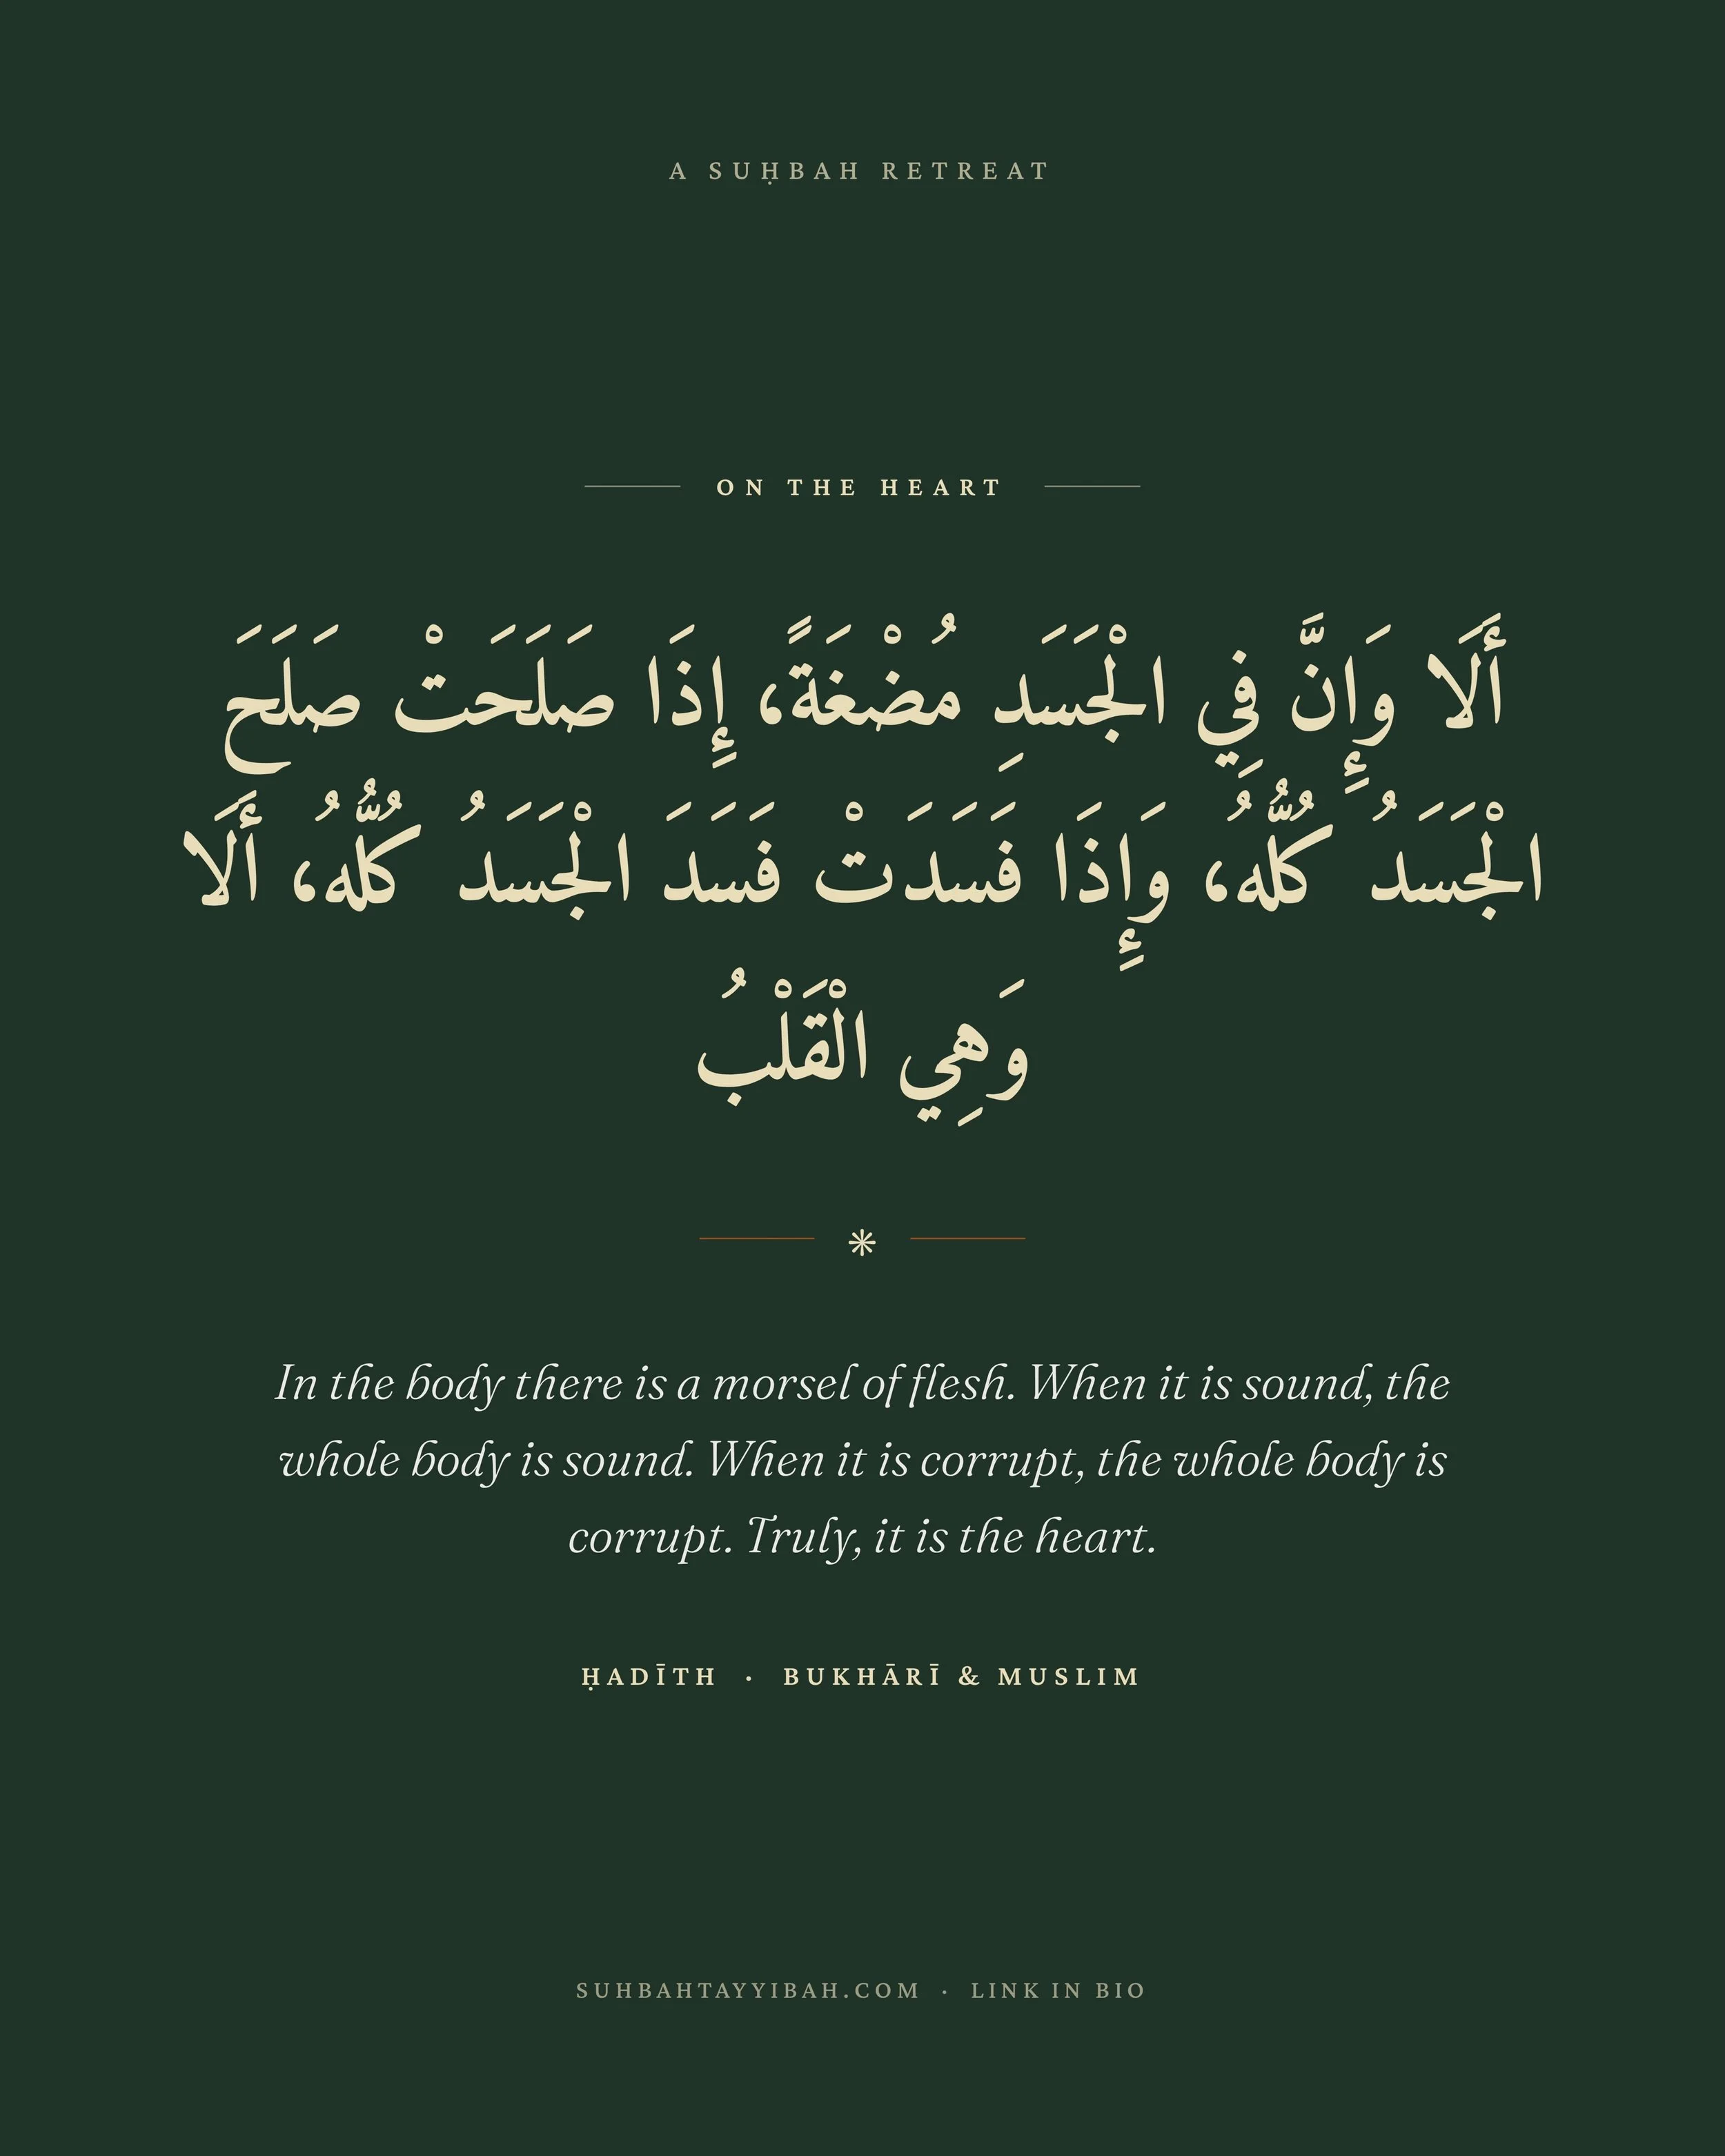 A SUḤBAH RETREAT
ON THE HEART
أَلَا وَإِنَّ فِي الْجَسَدِ مُضْغَةً، إِذَا صَلَحَتْ صَلَحَ
الْجَسَدُ كُلُّهُ، وَإِذَا فَسَدَتْ فَسَدَ الْجَسَدُ كُلُّهُ، أَلَا
وَهِي الْقَلْبُ
In the body there is a morsel of flesh. When it is sound, the
whole body is sound. When it is corrupt, the whole body is
corrupt. Truly, it is the heart.
ḤADĪTH · BUKHĀRĪ & MUSLIM
SUHBAHTAYYIBAH.COM · LINK IN BIO